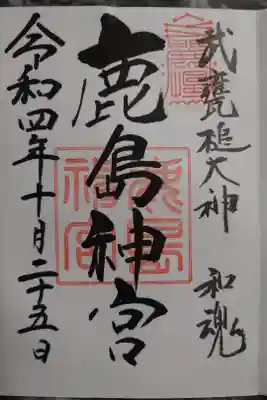 武甕槌大神 和魂
鹿島神宮
鹿島神宮
令和四年十月二十五日